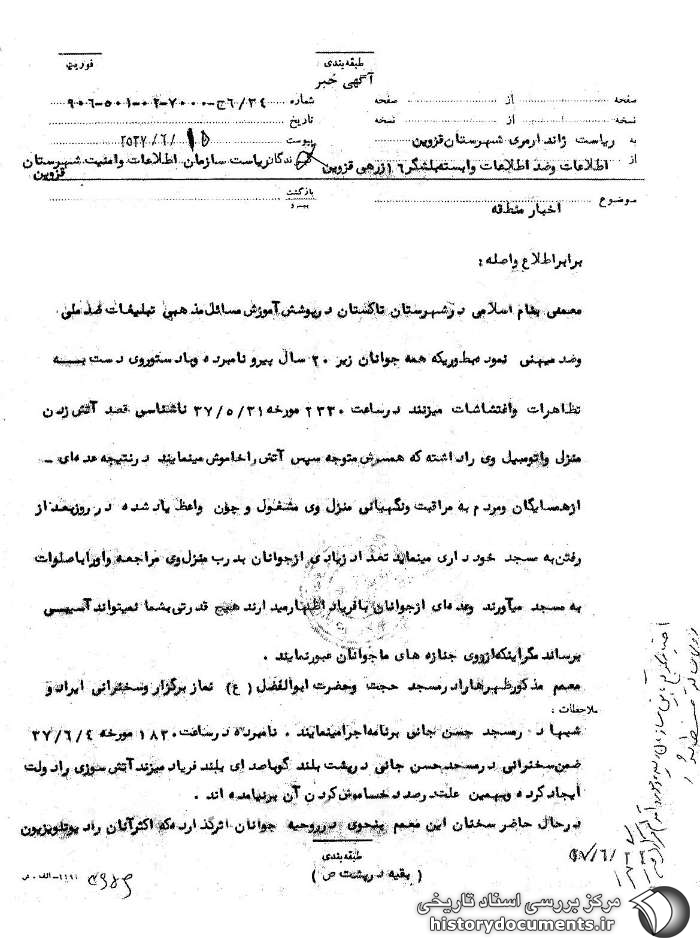 طبقه‌بندی
فوریت
آگهی خبر
صفحه از صفحه شماره ۹۰۶-۵۰۱-۰۲-۷۰۰۰-ج۶/۳۴
نسخه از نسخه تاریخ
به ریاست ژاندارمری شهرستان قزوین پیوست ۱۵ /۶/ ۲۵۳۷
از اطلاعات وضد اطلاعات وابسته لشگر ۱۶ زرهی قزوین گیرندگان ریاست سازمان اطلاعات وامنیت شهرستان قزوین
موضوع اخبار منطقه بازگشت
برابر اطلاع واصله :
معممی بنام اسلامی در شهرستان تاکستان در پوشش آموزش مسائل مذهبی تبلیغات ضد ملی
وضد میهنی نموده بطوریکه همه جوانان زیر ۲۰ سال پیرو نامبرده وبا دستور وی دست بــه
تظاهرات واغتشاشات میزنند در ساعت ۲۳۳۰ مورخه ۳۷/۵/۳۱ ناشناسی قصد آتش زدن
منزل واتومبیل وی را داشته که همسرش متوجه سپس آتش را خاموش مینمایند در نتیجه عده‌ای ـ
از همسایگان ومردم به مراقبت ونگهبانی منزل وی مشغول و چون واعظ یاد شده در روز بعد از
رفتن به مسجد خود داری مینماید تعداد زیادی از جوانان بدرب منزل وی مراجعه واورا باصلوات
به مسجد میآورند وعده‌ای از جوانان با فریاد اظهار میدارند هیچ قدرتی بشما نمیتواند آسیبی
برساند مگر اینکه از روی جنازه های ما جوانان عبور نمایند .
معمم مذکور ظهرها در مسجد حجت وحضرت ابوالفضل (ع) نماز برگزار وسخنرانی ایراد و
ملاحظات :
شبها در مسجد حسن جانی برنامه اجرا مینمایند . نامبرده در ساعت ۱۸۳۰ مورخه ۳۷/۶/۴
ضمن سخنرانی در مسجد حسن جانی در پشت بلند گو با صدای بلند فریاد میزند آتش سوزی را دولت
ایجاد کرده وبهمین علت در صدد خاموش کردن آن بر نیامده اند .
در حال حاضر سخنان این معمم بنحوی در روحیه جوانان اثر گذارده که اکثر آنان رادیو تلویزیون
طبقه‌بندی
( بقیه در پشت ص )
مرکز بررسی اسناد تاریخی
historydocuments.ir